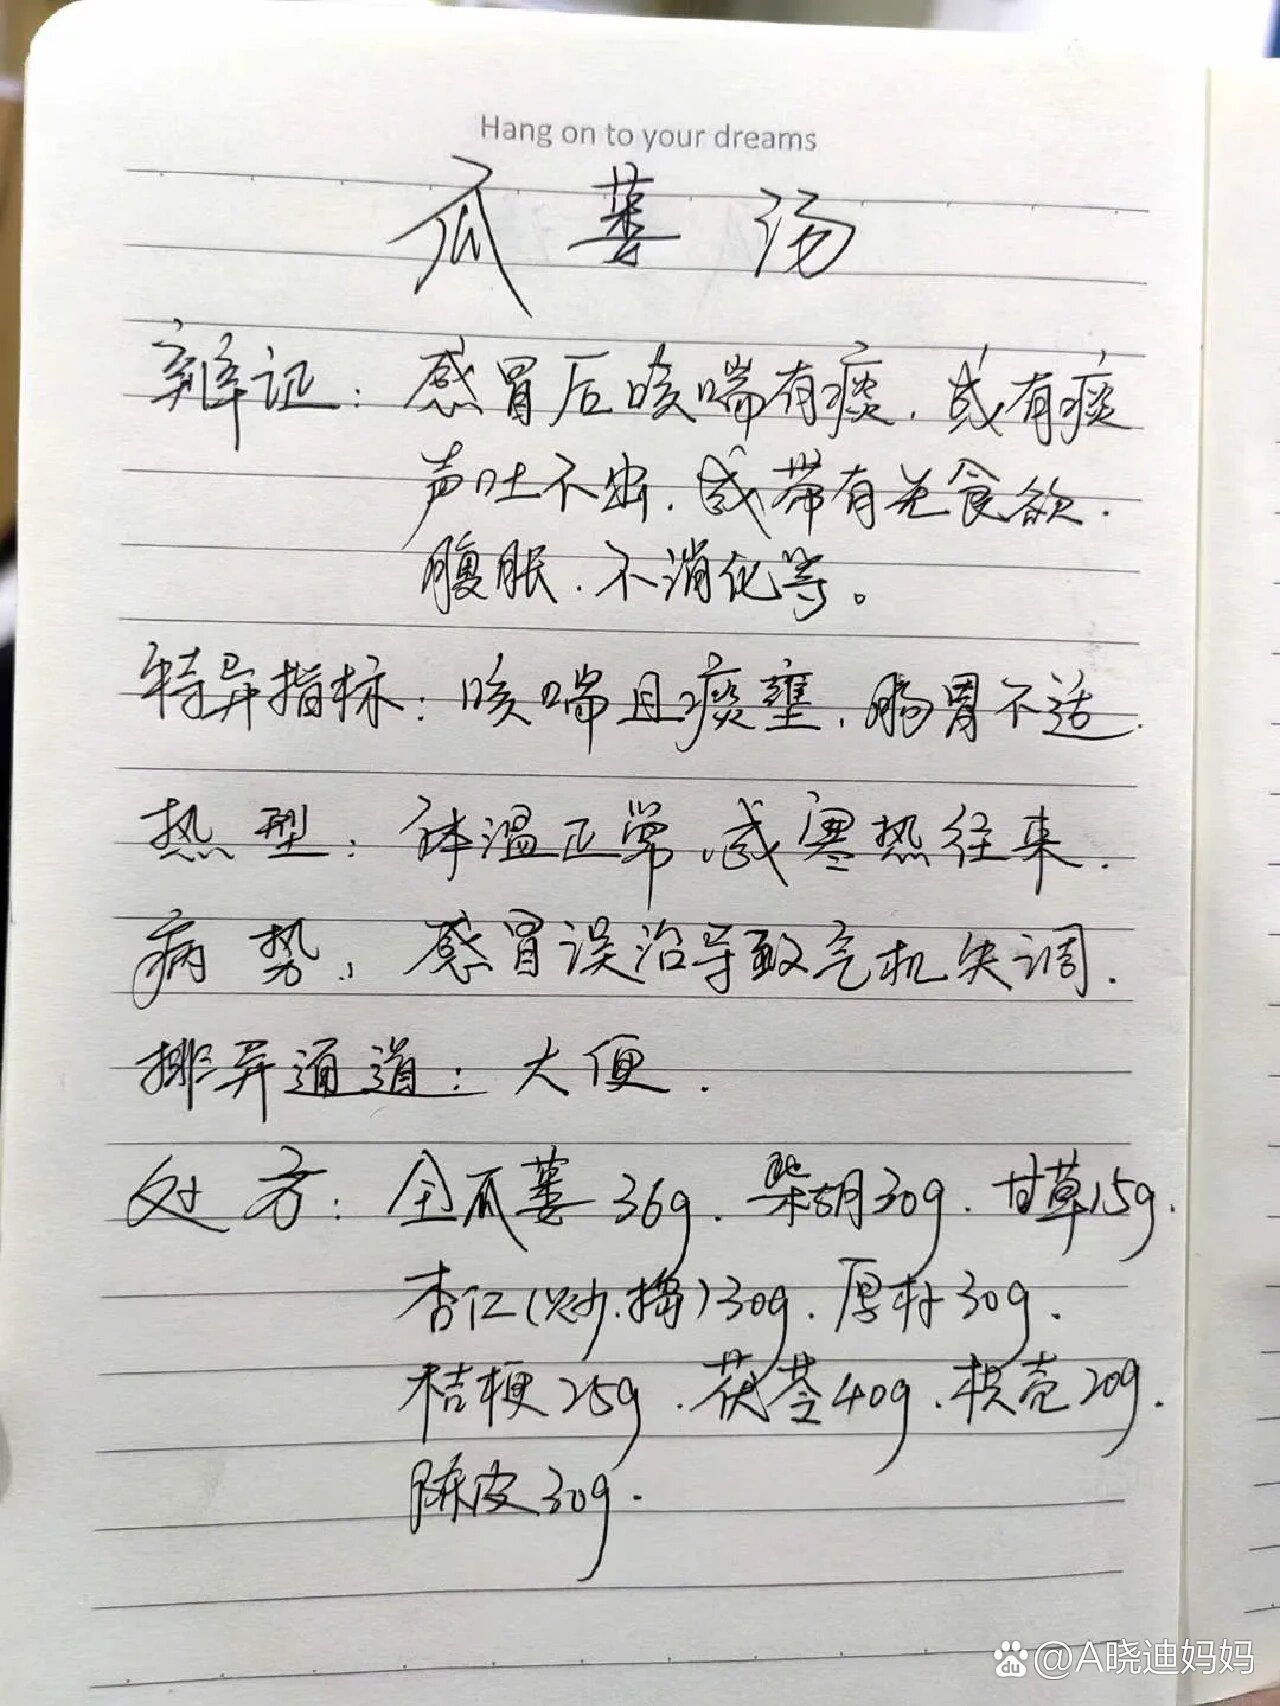 Hang on to your dreams
瓜蒌汤
辨证：感冒后咳喘有痰，或有痰
声吐不出，或带有无食欲，
腹胀，不消化等。
特异指标：咳喘且痰壅，肠胃不适.
热型：体温正常，或寒热往来.
病势：感冒误治导致气机失调.
排异通道：大便.
处方：全瓜蒌36g. 柴胡30g. 甘草15g.
杏仁(炒.捣)30g. 厚朴30g.
桔梗25g. 茯苓40g. 枳壳20g.
陈皮30g.
Bai du @A晓迪妈妈